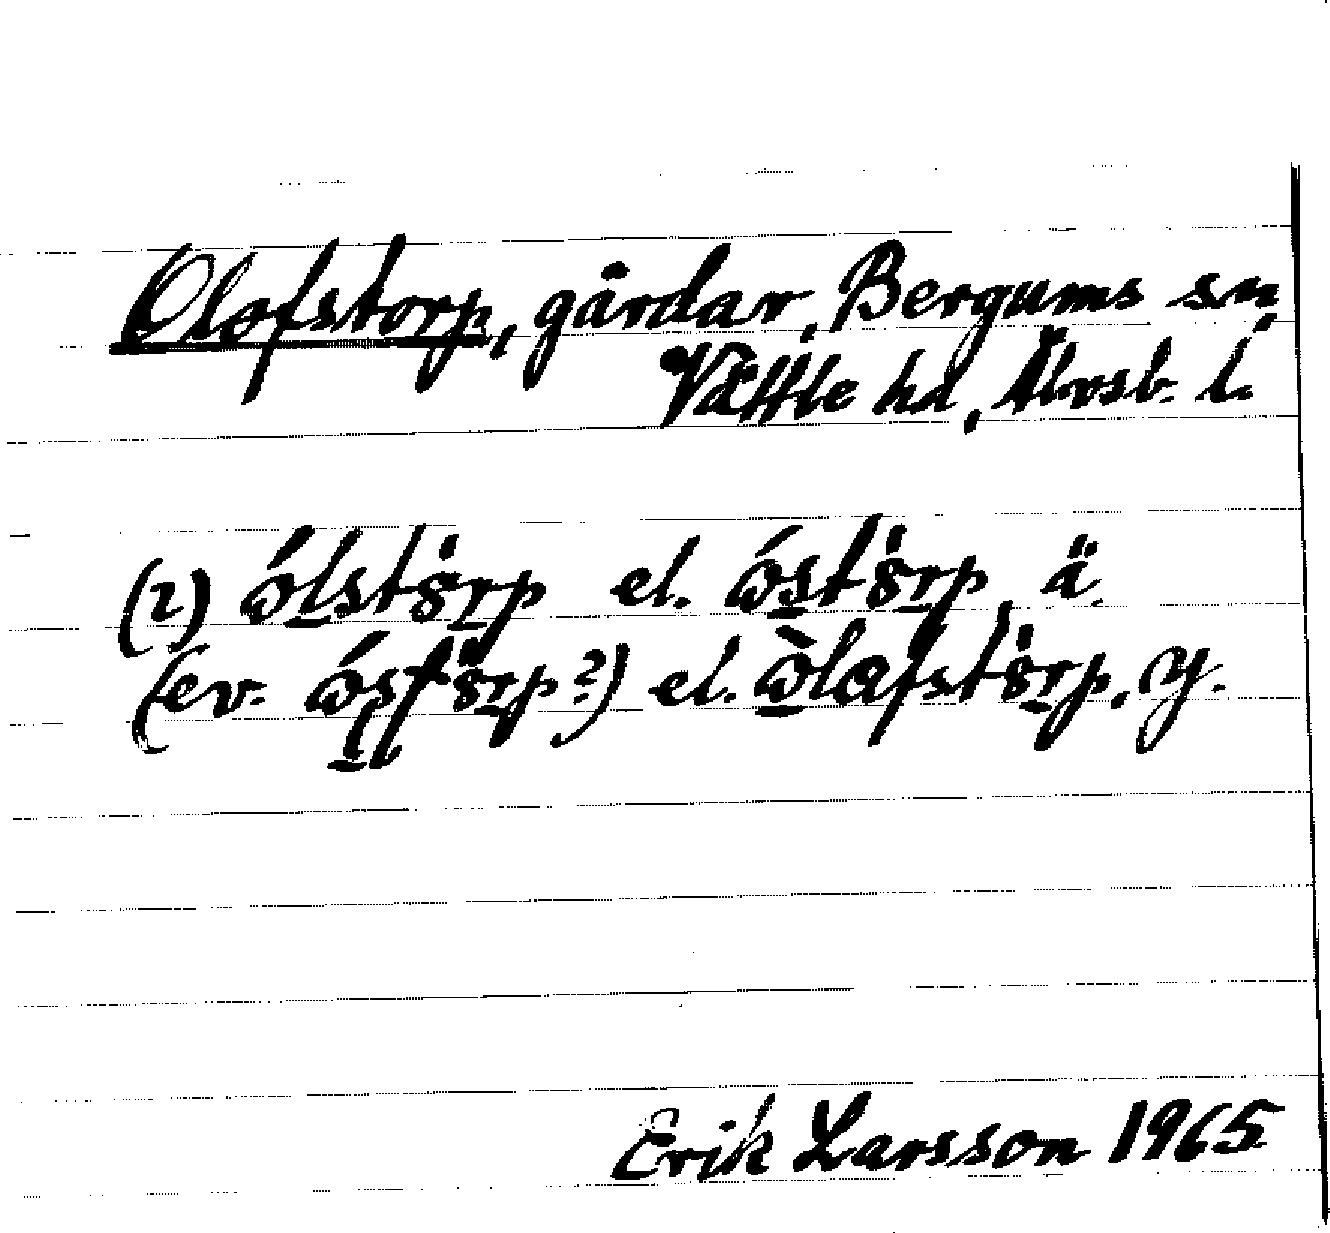 Olofstorp, gårdar, Bergums sn,
Vättle hd, Älvsb. l.
(i) ɷ́lstȯrp el. ɷ́stȯrp, ä.
(ev. ɷ́stȯrp?) el. ɷ̀lafstȯrp, y.
Erik Larsson 1965